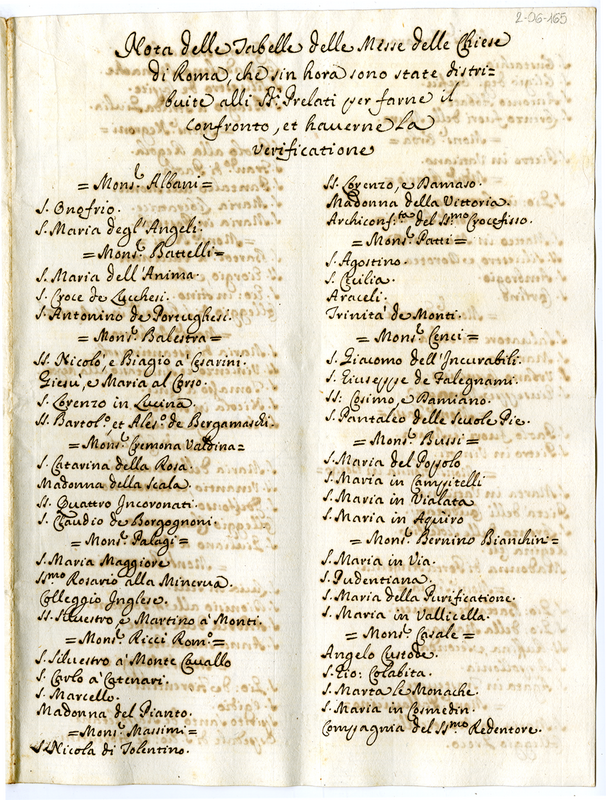 2-06-165
Nota delle Tabelle delle Messe delle Chiese
di Roma, che sin hora sono state distri=
buite alli Sri. Prelati per farne il
Confronto, et hauerne la
Verificatione
= Monsr. Albani =
S. Onofrio.
S. Maria degl'Angeli.
= Monsr. Battelli =
S. Maria dell'Anima.
S. Croce de Lucchesi.
S. Antonino de Portughesi.
= Monsr. Balestra =
SS. Nicolò, e Biagio a' Cesarini.
Giesù, e Maria al Corso.
S. Lorenzo in Lucina.
SS. Bartolo. et Aleso. de Bergamaschi.
= Monsr. Cremona Valdina =
S. Catarina della Rosa.
Madonna della Scala.
SS. Quattro Incoronati.
S. Claudio de Borgognoni.
= Monsr. Palagi =
S. Maria Maggiore
SSmo Rosario alla Minerua.
Colleggio Inglese.
SS. Siluestro, e Martino a' Monti.
= Monsr. Ricci Romo. =
S. Siluestro a' Monte Cauallo
S. Carlo a' Catenari.
S. Marcello.
Madonna del Pianto.
= Monsr. Massimi =
S. Nicola di Tolentino.
SS. Lorenzo, e Damaso.
Madonna della Vittoria.
Archiconf:ta del SSmo Crocefisso.
= Monsr. Patti =
S. Agostino.
S. Cecilia.
Araceli.
Trinità de Monti.
= Monsr. Cenci =
S. Giacomo dell'Incurabili.
S. Giuseppe de Falegnami.
SS: Cosimo, e Damiano.
S. Pantaleo delle Scuole Pie.
= Monsr. Bussi =
S. Maria del Popolo
S. Maria in Campitelli
S. Maria in Vialata
S. Maria in Aquiro
= Monsr. Bernino Bianchin =
S. Maria in Via.
S. Pudentiana.
S. Maria della Purificatione.
S. Maria in Vallicella.
= Monsr. Casale =
Angelo Custode.
S. Gio: Colabita.
S. Marta le Monache.
S. Maria in Cosmedin.
Compagnia del SSmo Redentore.